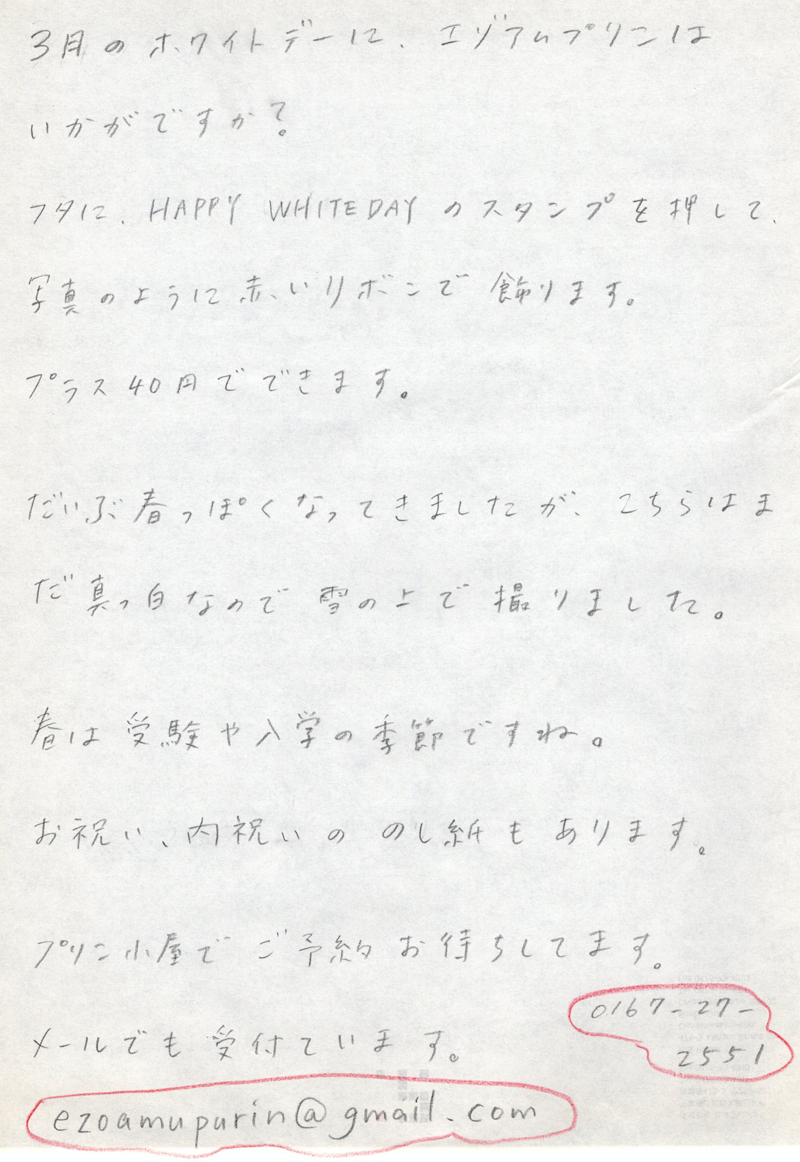 3月のホワイトデーに、エゾアムプリンは
いかがですか?
フタに、HAPPY WHITEDAYのスタンプを押して、
写真のように赤いリボンで飾ります。
プラス40円でできます。
だいぶ春っぽくなってきましたが、こちらはま
だ真っ白なので雪の上で撮りました。
春は受験や入学の季節ですね。
お祝い、内祝いののし紙もあります。
プリン小屋でご予約お待ちしてます。
0167-27-
2551
メールでも受付ています。
ezoamupurin@gmail.com